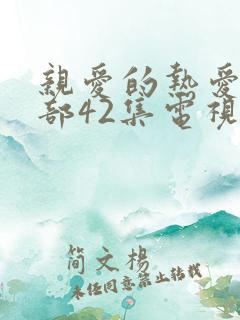 親愛的熱愛
部42集電視
简文楊
未任同意禁止转载